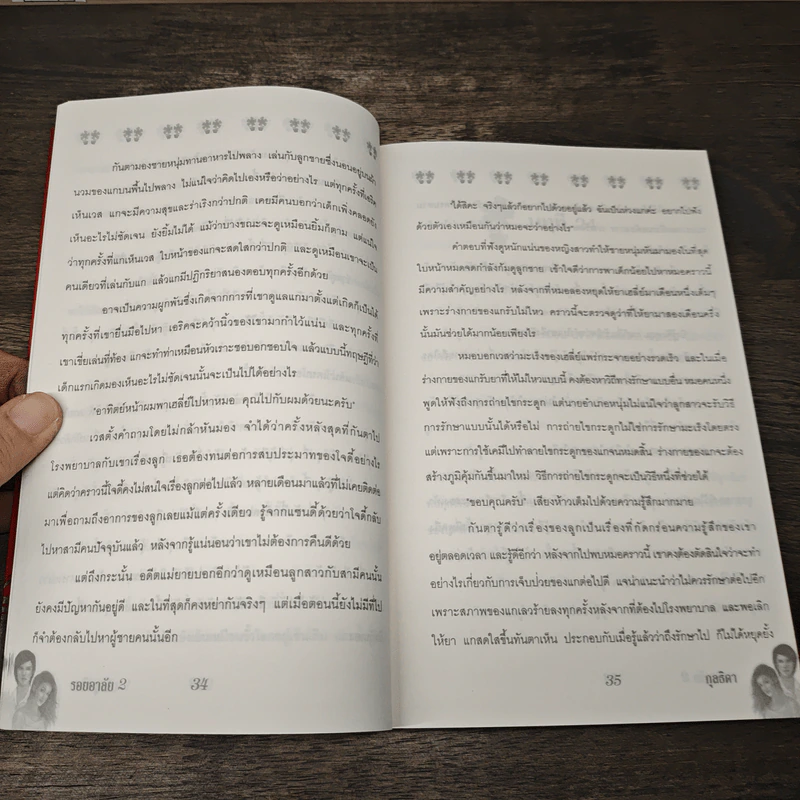 กันตามองชายหนุ่มทานอาหารไปพลาง เล่นกับลูกชายซึ่งนอนอยู่บนผ้า
นวมของแกบนพื้นไปพลาง ไม่แน่ใจว่าคิดไปเองหรือว่าอย่างไร แต่ทุกครั้งที่เอริค
เห็นเวส แกจะมีความสุขและร่าเริงกว่าปกติ เคยมีคนบอกว่าเด็กเพิ่งคลอดยัง
เห็นอะไรไม่ชัดเจน ยังยิ้มไม่ได้ แม้ว่าบางขณะจะดูเหมือนยิ้มก็ตาม แต่แน่ใจ
ว่าทุกครั้งที่แกเห็นเวส ใบหน้าของแกจะสดใสกว่าปกติ และดูเหมือนเขาจะเป็น
คนเดียวที่เล่นกับแก แล้วแกมีปฏิกิริยาสนองตอบทุกครั้งอีกด้วย
อาจเป็นความผูกพันซึ่งเกิดจากการที่เขาดูแลแกมาตั้งแต่เกิดก็เป็นได้
ทุกครั้งที่เขายื่นมือไปหา เอริคจะคว้านิ้วของเขามากำไว้แน่น และทุกครั้งที่
เขาเขี่ยเล่นที่ท้อง แกจะทำท่าเหมือนหัวเราะชอบอกชอบใจ แล้วแบบนี้ทฤษฎีที่ว่า
เด็กแรกเกิดมองเห็นอะไรไม่ชัดเจนนั้นจะเป็นไปได้อย่างไร
'อาทิตย์หน้าผมพาเฮลีย์ไปหาหมอ คุณไปกับผมด้วยนะครับ'
เวสตั้งคำถามโดยไม่กล้าหันมอง จำได้ว่าครั้งหลังสุดที่กันตาไป
โรงพยาบาลกับเขาเรื่องลูก เธอต้องทนต่อการสบประมาทของใจดี้อย่างไร
แต่คิดว่าคราวนี้ใจดี้คงไม่สนใจเรื่องลูกต่อไปแล้ว หลายเดือนมาแล้วที่ไม่เคยติดต่อ
มาเพื่อถามถึงอาการของลูกเลยแม้แต่ครั้งเดียว รู้จากแซนดี้ด้วยว่าใจดี้กลับ
ไปหาสามีคนปัจจุบันแล้ว หลังจากรู้แน่นอนว่าเขาไม่ต้องการคืนดีด้วย
แต่ถึงกระนั้น อดีตแม่ยายบอกอีกว่าดูเหมือนลูกสาวกับสามีคนนั้น
ยังคงมีปัญหากันอยู่ดี และในที่สุดก็คงหย่ากันจริงๆ แต่เมื่อตอนนี้ยังไม่มีที่ไป
ก็จำต้องกลับไปหาผู้ชายคนนั้นอีก
รอยอาลัย 2 34
'ได้สิคะ จริงๆแล้วก็อยากไปด้วยอยู่แล้ว ฉันเป็นห่วงแกค่ะ อยากไปฟัง
ด้วยตัวเองเหมือนกันว่าหมอจะว่าอย่างไร'
คำตอบที่ฟังดูหนักแน่นของหญิงสาวทำให้ชายหนุ่มหันมามองในที่สุด
ใบหน้าหมดจดกำลังก้มดูลูกชาย เข้าใจดีว่าการพาเด็กน้อยไปหาหมอคราวนี้
มีความสำคัญอย่างไร หลังจากที่หมอลองหยุดให้ยาเฮลีย์มาเดือนหนึ่งเต็มๆ
เพราะร่างกายของแกรับไม่ไหว คราวนี้จะตรวจดูว่าที่ให้ยามาสองเดือนครึ่ง
นั้นมันช่วยได้มากน้อยเพียงไร
หมอบอกเวสว่ามะเร็งของเฮลีย์แพร่กระจายอย่างรวดเร็ว และในเมื่อ
ร่างกายของแกรับยาที่ให้ไม่ไหวแบบนี้ คงต้องหาวิถีทางรักษาแบบอื่น หมอคนหนึ่ง
พูดให้ฟังถึงการถ่ายไขกระดูก แต่นายอำเภอหนุ่มไม่แน่ใจว่าลูกสาวจะรับวิธี
การรักษาแบบนั้นได้หรือไม่ การถ่ายไขกระดูกไม่ใช่การรักษามะเร็งโดยตรง
แต่เพราะการใช้เคมีไปทำลายไขกระดูกของแกจนหมดสิ้น ร่างกายของแกจะต้อง
สร้างภูมิคุ้มกันขึ้นมาใหม่ วิธีการถ่ายไขกระดูกจะเป็นวิธีหนึ่งที่ช่วยได้
'ขอบคุณครับ' เสียงห้าวเต็มไปด้วยความรู้สึกมากมาย
กันตารู้ดีว่าเรื่องของลูกเป็นเรื่องที่กัดกร่อนความรู้สึกของเขา
อยู่ตลอดเวลา และรู้ดีอีกว่า หลังจากไปพบหมอคราวนี้ เขาคงต้องตัดสินใจว่าจะทำ
อย่างไรเกี่ยวกับการเจ็บป่วยของแกต่อไปดี แจนนำแนะนำว่าไม่ควรรักษาต่อไปอีก
เพราะสภาพของแกเลวร้ายลงทุกครั้งหลังจากที่ต้องไปโรงพยาบาล และพอเลิก
ให้ยา แกสดใสขึ้นทันตาเห็น ประกอบกับเมื่อรู้แล้วว่าถึงรักษาไป ก็ไม่ได้หยุดยั้ง
35 กุลธิดา